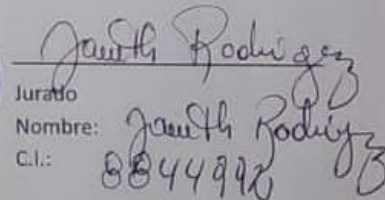 Janeth Rodriguez
Jurado
Nombre: Janeth Rodrigz
C.I.: 8844992